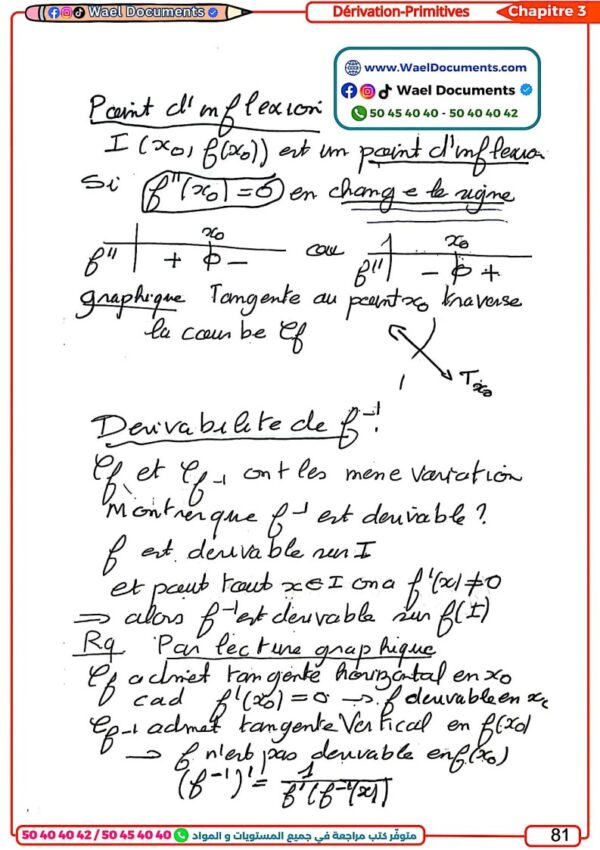 Wael Documents
Dérivation-Primitives
Chapitre 3
www.WaelDocuments.com
Wael Documents
50 45 40 40 - 50 40 40 42
Point d'inflexion
I (x₀, f(x₀)) est un point d'inflexion
Si f''(x₀) = 0 en change le signe
x₀
f'' + 0 -
ou
x₀
f'' - 0 +
graphique Tangente au point x₀ traverse
la courbe Cf
Tx₀
Derivabilite de f⁻¹:
Cf et Cf⁻¹ ont les mene variation
Montrer que f⁻¹ est derivable ?
f est derivable sur I
et pout tout x ∈ I on a f'(x) ≠ 0
⇒ alors f⁻¹ est derivable sur f(I)
Rq Par lecture graphique
Cf admet tangente horizontal en x₀
cad f'(x₀) = 0 → f derivable en x₀
Cf⁻¹ admet tangente Vertical en f(x₀)
→ f n'est pas derivable en f(x₀)
(f⁻¹)' = 1 / f'(f⁻¹(x))
50 40 40 42 / 50 45 40 40 متوفّر كتب مراجعة في جميع المستويات و المواد
81